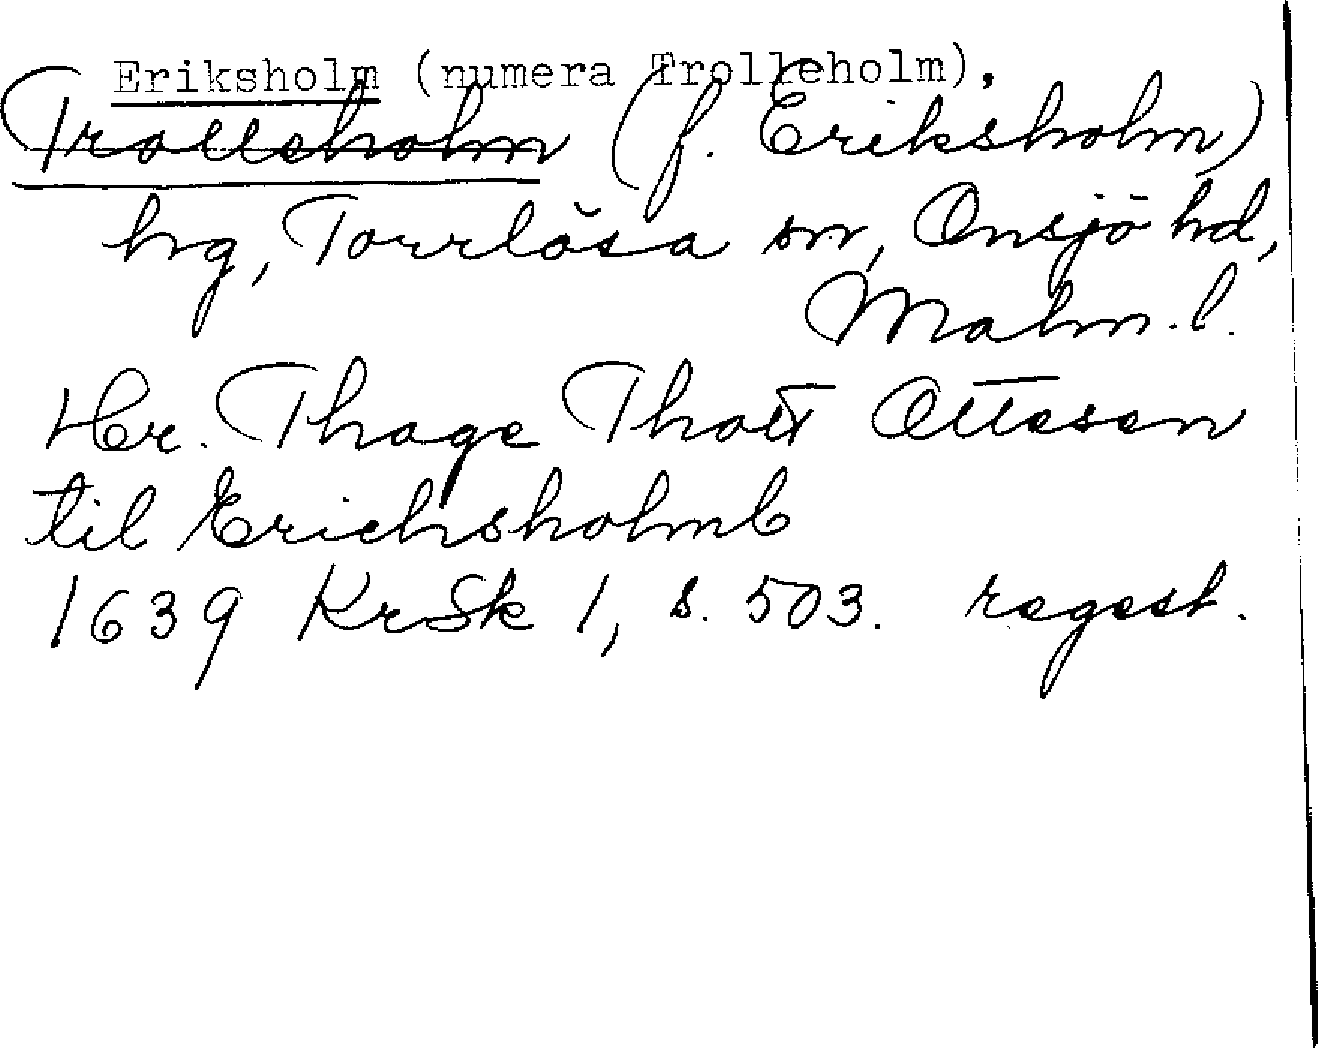 Eriksholm (numera Trolleholm),
Trolleholm (f. Eriksholm)
hg, Torrlösa sn, Onsjö hd,
Malm. l.
Her. Thage Thott Ottesen
til Erichsholmb
1639 KrSk 1, s. 503. regest.